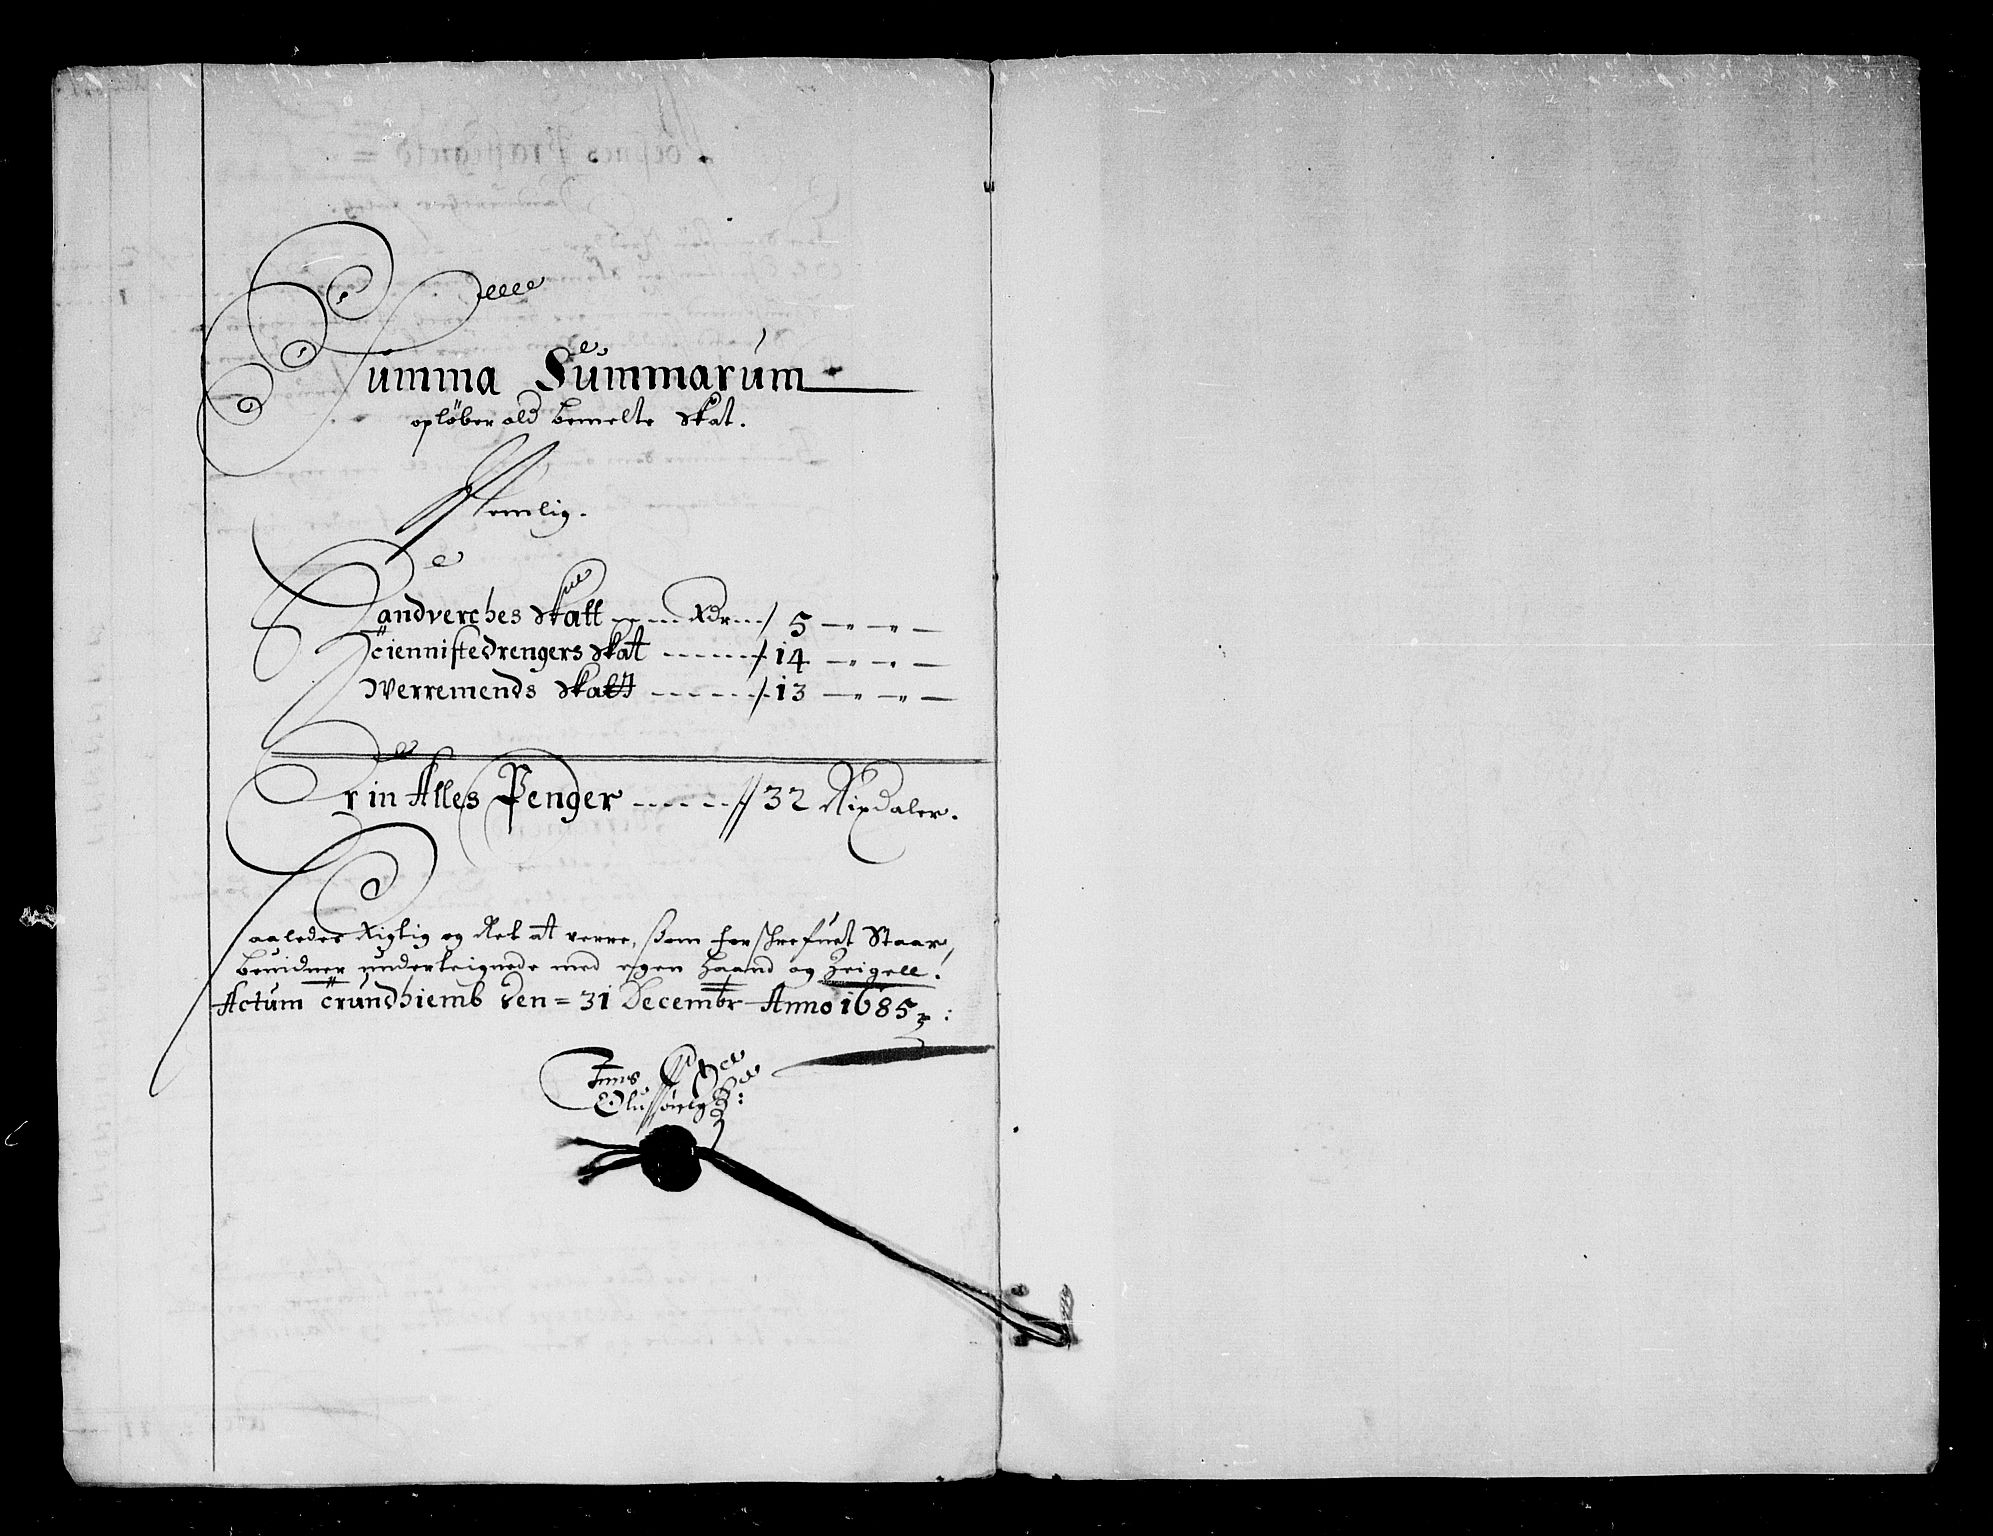 Summa Summarum
opløber ald bemelte Skat.
Nemlig.
Handverches Skatt --- Rdr --- / 5 — „ — „ —
Tienniste drengers Skat ------ / 14 — „ — „ —
Werremends Skatt ------ / 13 — „ — „ —
Er in Alles Penger ------ // 32 Rixdaler.
Saaledes Rigtig og Ret at verre, som forschrefuet Staar,
beuidner underteignede med egen Haand og Zeigell.
Actum Trundhiemb den = 31 Decembr Anno 1685
Jens